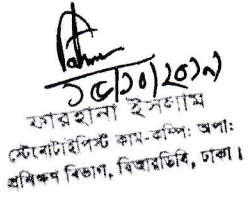 ১৫/১০/২০১৭
ফারহানা ইসলাম
স্টেনোটাইপিস্ট কাম-কম্পি: অপা:
প্রশিক্ষণ বিভাগ, বিআরডিবি, ঢাকা।